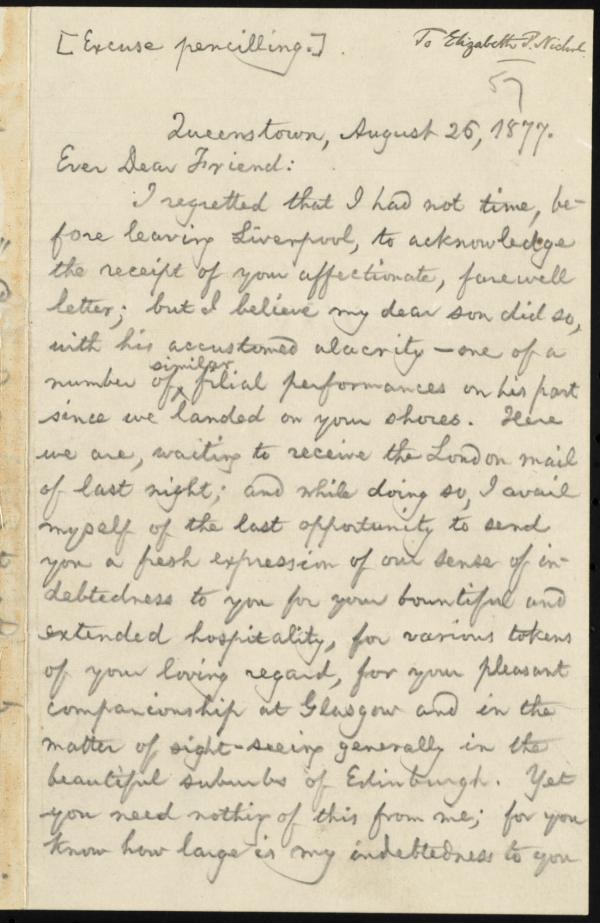 [Excuse pencilling.]
To Elizabeth P. Nichol.
57
Queenstown, August 26, 1877.
Ever Dear Friend:
I regretted that I had not time, be-
fore leaving Liverpool, to acknowledge
the receipt of your affectionate, farewell
letter; but I believe my dear son did so,
with his accustomed alacrity — one of a
similar
number of filial performances on his part
since we landed on your shores. Here
we are, waiting to receive the London mail
of last night; and while doing so, I avail
myself of the last opportunity to send
you a fresh expression of our sense of in-
debtedness to you for your bountiful and
extended hospitality, for various tokens
of your loving regard, for your pleasant
companionship at Glasgow and in the
matter of sight-seeing generally in the
beautiful suburbs of Edinburgh. Yet
you need nothing of this from me; for you
know how large is my indebtedness to you